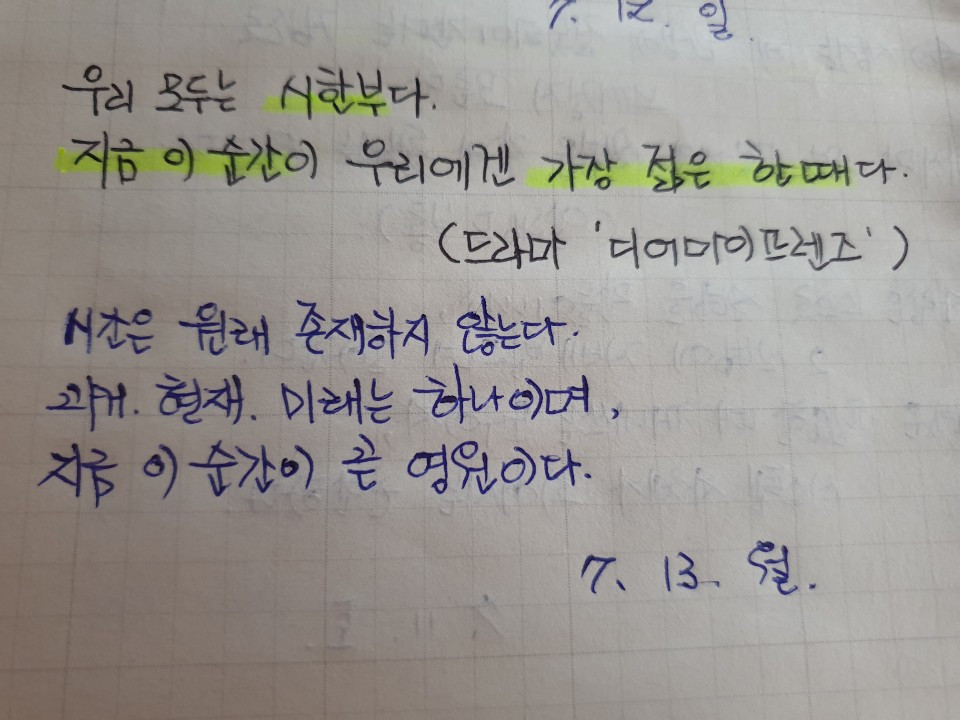 7. 12. 일.
우리 모두는 시한부다.
지금 이 순간이 우리에겐 가장 젊은 한때다.
(드라마 '디어마이프렌즈')
시간은 원래 존재하지 않는다.
과거. 현재. 미래는 하나이며,
지금 이 순간이 곧 영원이다.
7. 13. 월.